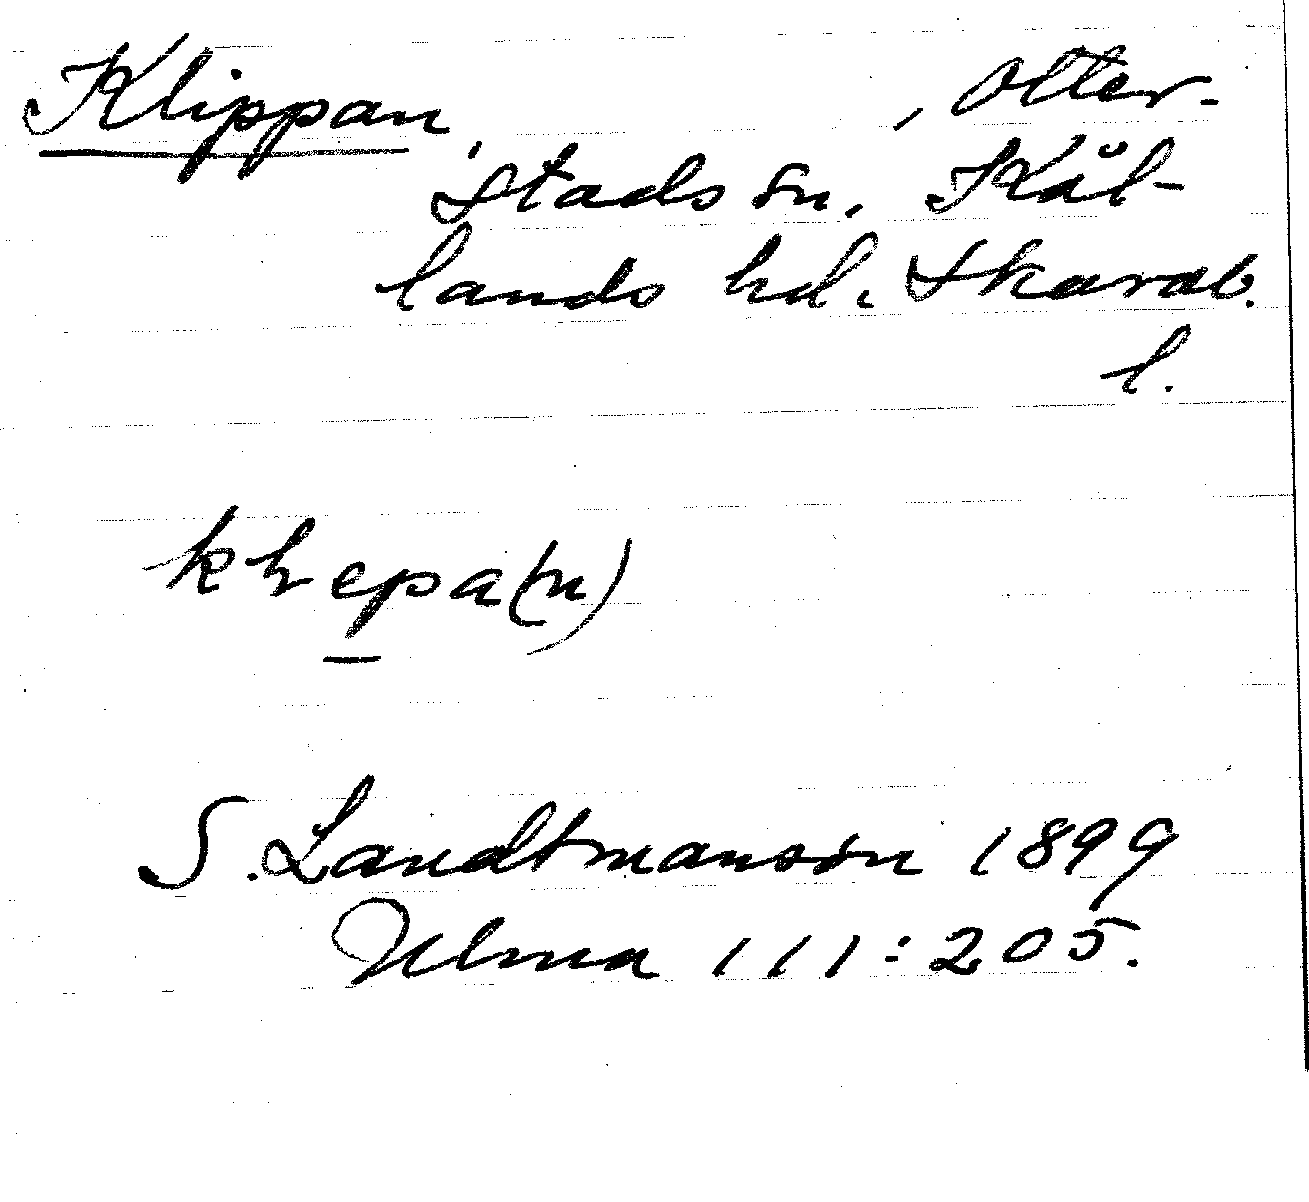 Klippan, , Otter-
stads sn, Kål-
lands hd. Skarab.
l.
klepa(n)
S. Landtmanson 1899
Ulma 111:205.